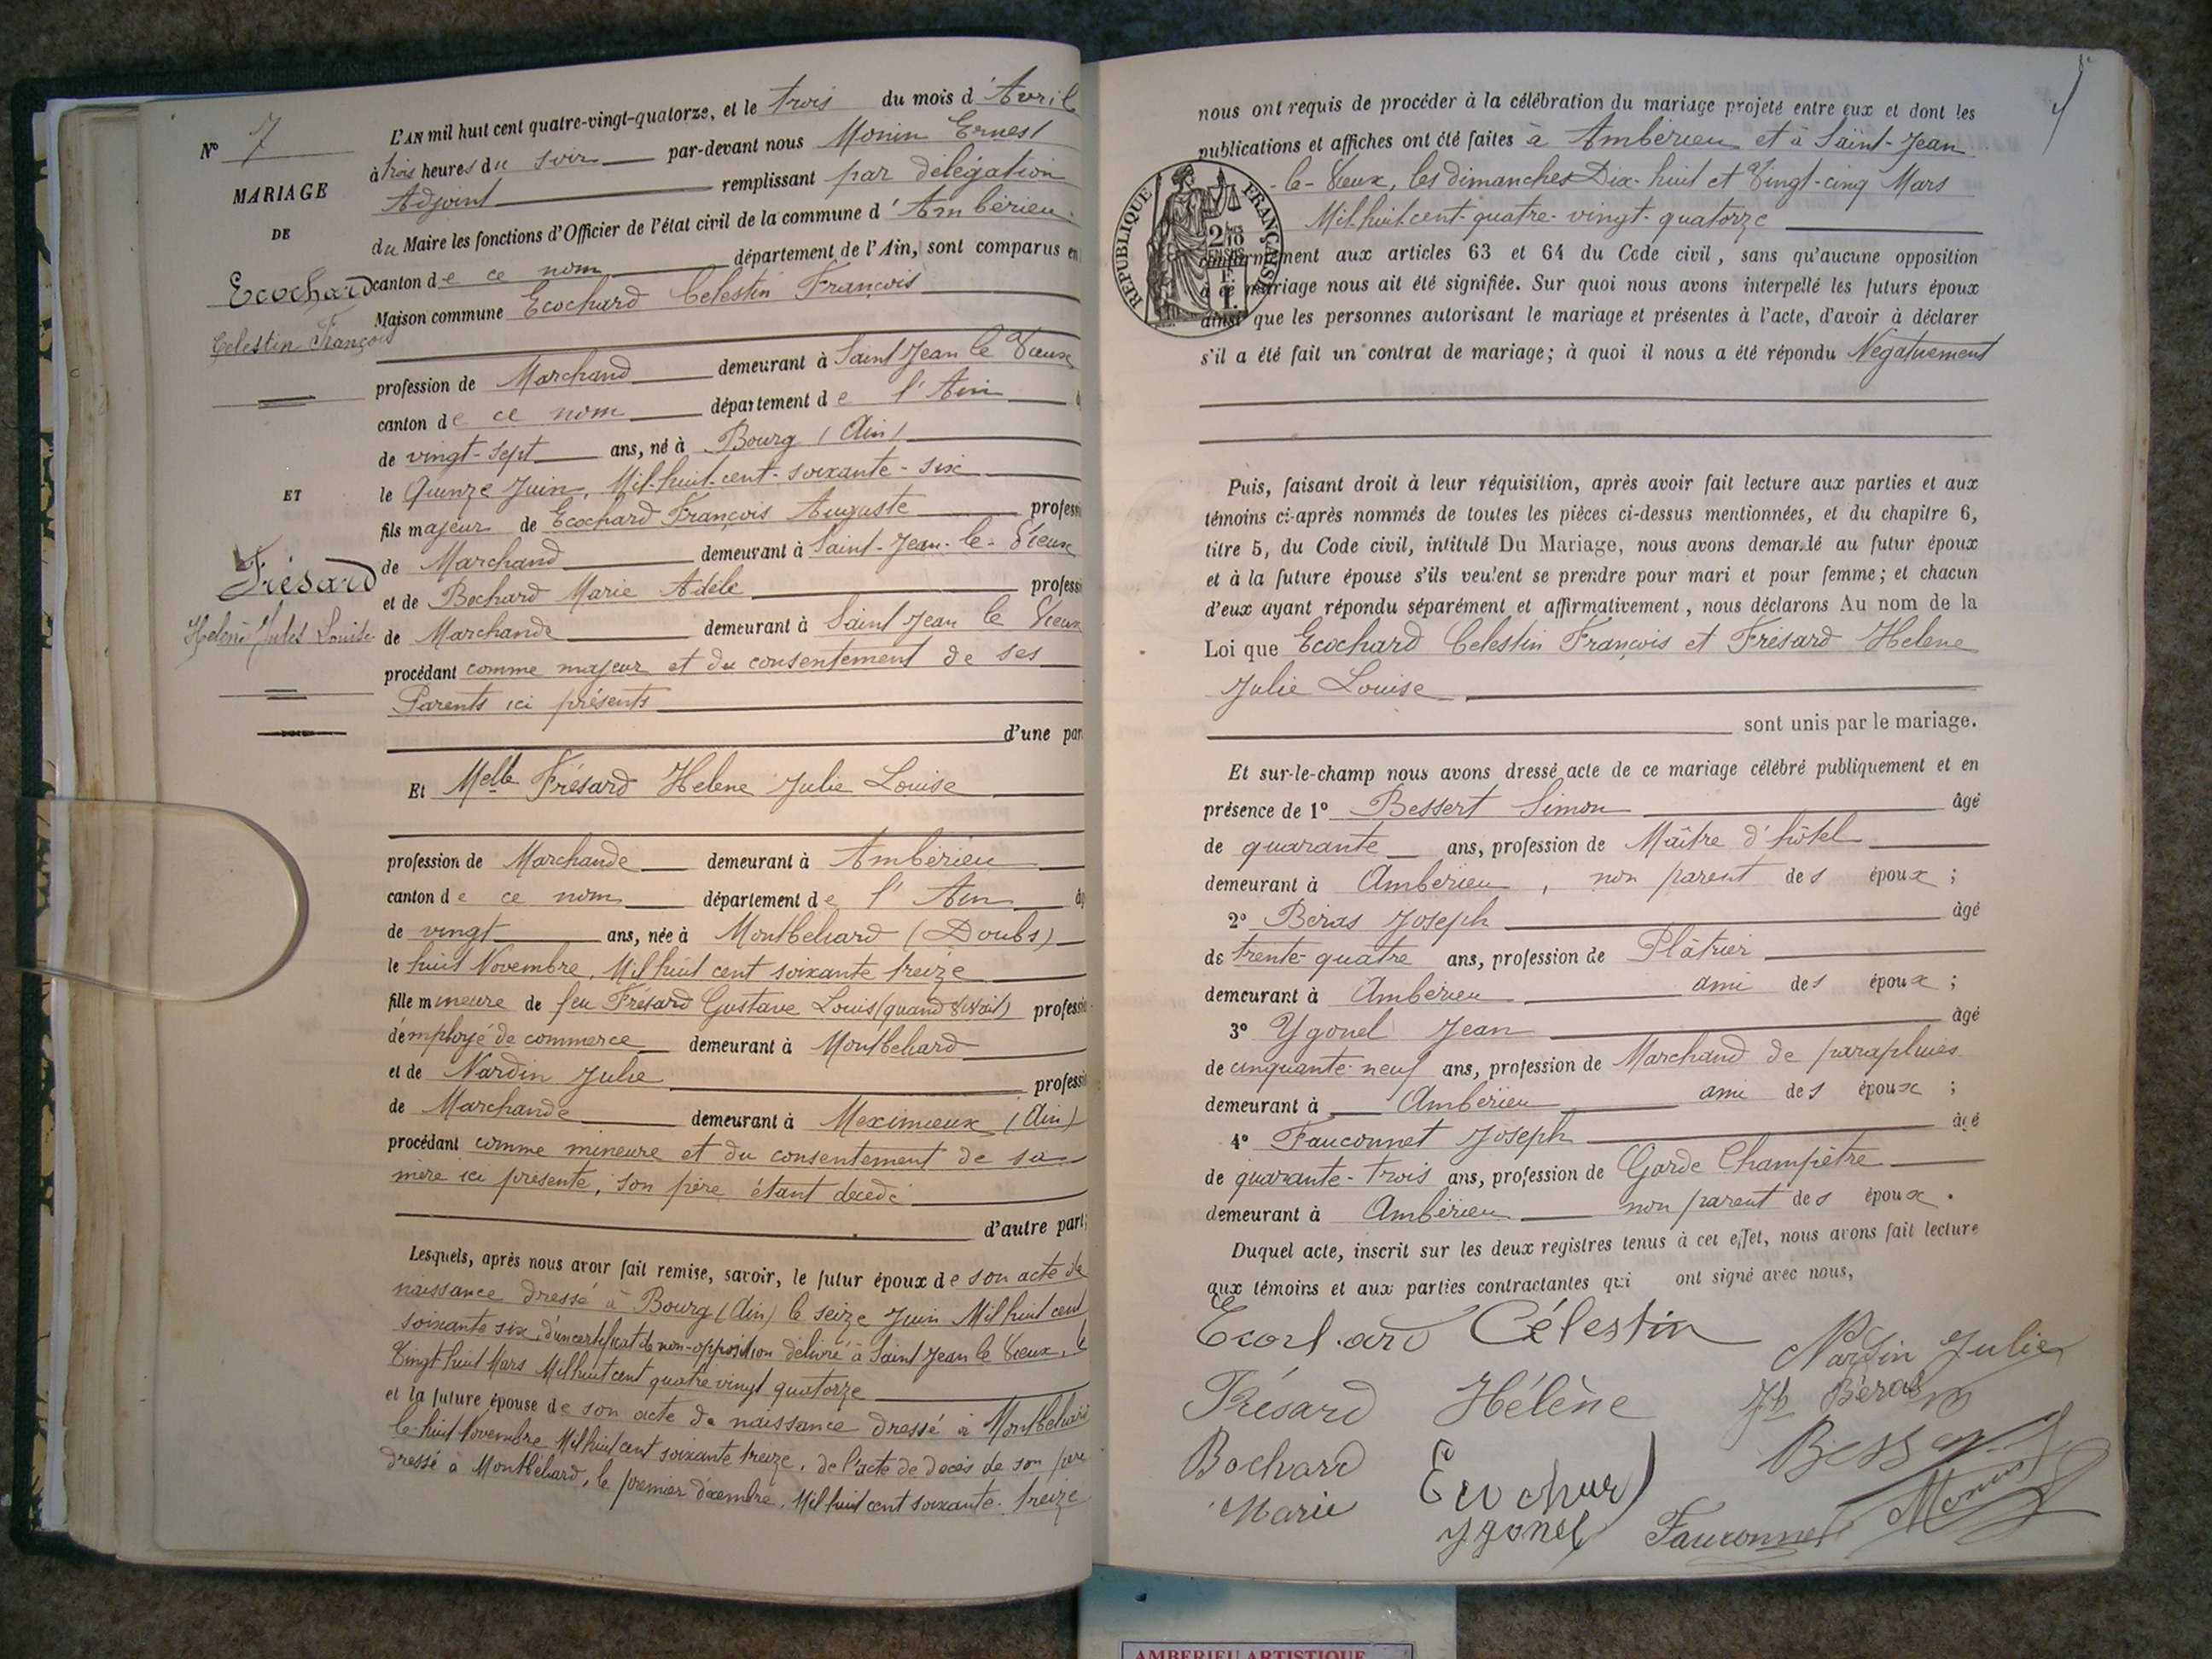 N° 7
MARIAGE
DE
Ecochard
Celestin François
ET
Frésard
Helene Jules Louise
L'AN mil huit cent quatre-vingt-quatorze, et le trois du mois d'Avril
à trois heures du soir par-devant nous Monin Ernest
Adjoint remplissant par délégation
du Maire les fonctions d'Officier de l'état civil de la commune d'Ambérieu
canton de ce nom département de l'Ain, sont comparus en
Maison commune Ecochard Celestin François
profession de Marchand demeurant à Saint Jean le Vieux
canton de ce nom département de l'Ain
de vingt-sept ans, né à Bourg (Ain)
le Quinze Juin, Mil-huit-cent-soixante-six
fils majeur de Ecochard François Auguste profess
de Marchand demeurant à Saint-Jean-le-Vieux
et de Bochard Marie Adèle professi
de Marchande demeurant à Saint Jean le Vieux
procédant comme majeur et du consentement de ses
Parents ici présents
d'une par
Et Melle Frésard Helene Julie Louise
profession de Marchande demeurant à Ambérieu
canton de ce nom département de l'Ain
de vingt ans, née à Montbeliard (Doubs)
le huit Novembre, Mil huit cent soixante treize
fille mineure de feu Frésard Gustave Louis (quand vivait) professi
d'employé de commerce demeurant à Montbeliard
et de Nardin Julie professi
de Marchande demeurant à Meximieux (Ain)
procédant comme mineure et du consentement de sa
mère ici présente, son père étant decedé
d'autre part;
Lesquels, après nous avoir fait remise, savoir, le futur époux de son acte de
naissance dressé à Bourg (Ain) le seize Juin Mil huit cent
soixante six, d'un certificat de non-opposition délivré à Saint Jean le Vieux, le
Vingt huit Mars Mil huit cent quatre vingt quatorze
et la future épouse de son acte de naissance dressé à Montbeliard
le huit Novembre Mil huit cent soixante treize, de l'acte de deces de son père
dressé à Montbéliard, le premier décembre, Mil huit cent soixante-treize
nous ont requis de procéder à la célébration du mariage projeté entre eux et dont les
publications et affiches ont été faites à Ambérieu et à Saint-Jean
-le-Vieux, les dimanches Dix-huit et Vingt-cinq Mars
Mil-huit-cent-quatre-vingt-quatorze
RÉPUBLIQUE FRANÇAISE
conformément aux articles 63 et 64 du Code civil, sans qu'aucune opposition
à ce mariage nous ait été signifiée. Sur quoi nous avons interpellé les futurs époux
ainsi que les personnes autorisant le mariage et présentes à l'acte, d'avoir à déclarer
s'il a été fait un contrat de mariage; à quoi il nous a été répondu Négativement
Puis, faisant droit à leur réquisition, après avoir fait lecture aux parties et aux
témoins ci-après nommés de toutes les pièces ci-dessus mentionnées, et du chapitre 6,
titre 5, du Code civil, intitulé Du Mariage, nous avons demandé au futur époux
et à la future épouse s'ils veulent se prendre pour mari et pour femme; et chacun
d'eux ayant répondu séparément et affirmativement, nous déclarons Au nom de la
Loi que Ecochard Celestin François et Frésard Helene
Julie Louise
sont unis par le mariage.
Et sur-le-champ nous avons dressé acte de ce mariage célébré publiquement et en
présence de 1° Bessert Simon âgé
de quarante ans, profession de Maître d'hôtel
demeurant à Ambérieu, non parent des époux;
2° Béras Joseph âgé
de trente-quatre ans, profession de Plâtrier
demeurant à Ambérieu ami des époux;
3° Ygonel Jean âgé
de cinquante-neuf ans, profession de Marchand de parapluies
demeurant à Ambérieu ami des époux;
4° Fauconnet Joseph âgé
de quarante-trois ans, profession de Garde Champêtre
demeurant à Ambérieu non parent des époux.
Duquel acte, inscrit sur les deux registres tenus à cet effet, nous avons fait lecture
aux témoins et aux parties contractantes qui ont signé avec nous,
Ecochard Célestin
Nardin Julie
Frésard Hélène
Jh Béras
Bochard
Marie
Ecochard
Bessert
Ygonel
Fauconnet
Monin
AMBERIEU ARTISTIQUE